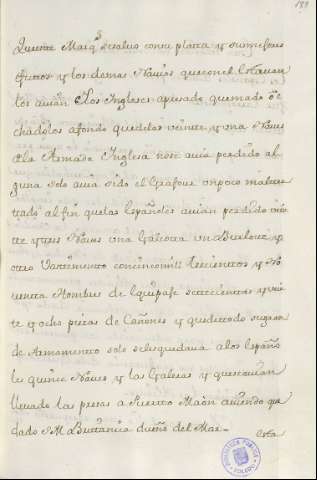 189
Quinze Marq.s se salvo con su plata y sus mejores
efectos y los demas Navios que con el estavan
los avian los Ingleses apresado quemado o e-
chadolos a fondo que de los veinte y una Naves
de la Armada Inglesa no se avia perdido al-
guna solo avia sido el Grafton un poco maltra-
tado al fin que los Españoles avian perdido vein-
te y tres Naves una Galeota un Burlote y
otro Vastimento con cinco mill trescientos y No-
venta Hombres de Equipase setecientos y vein-
te y ocho piezas de Cañones y que de todo su gran-
de Armamento solo se les quedava a los Españo-
les quince Naves y las Galeras y que se avian
llevado las presas a Puerto Maon aviendo que-
dado S.M. Brittanica dueño del Mar.-
esta
BIBLIOTECA PUBLICA
TOLEDO